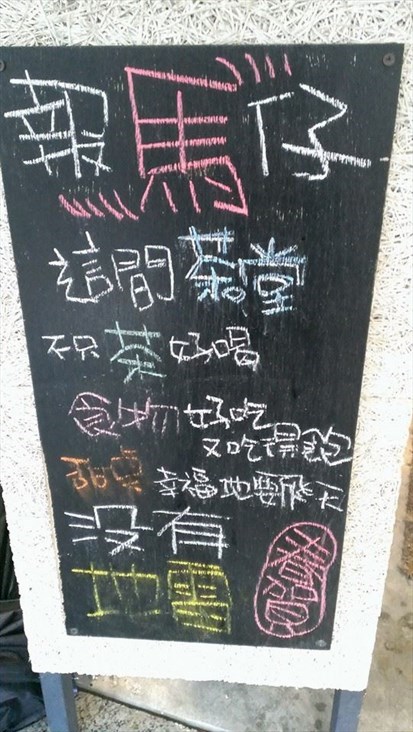 報馬仔
這間茶堂
不只茶好喝
食物好吃
又吃得飽
幸福地要飛天
沒有
地雷